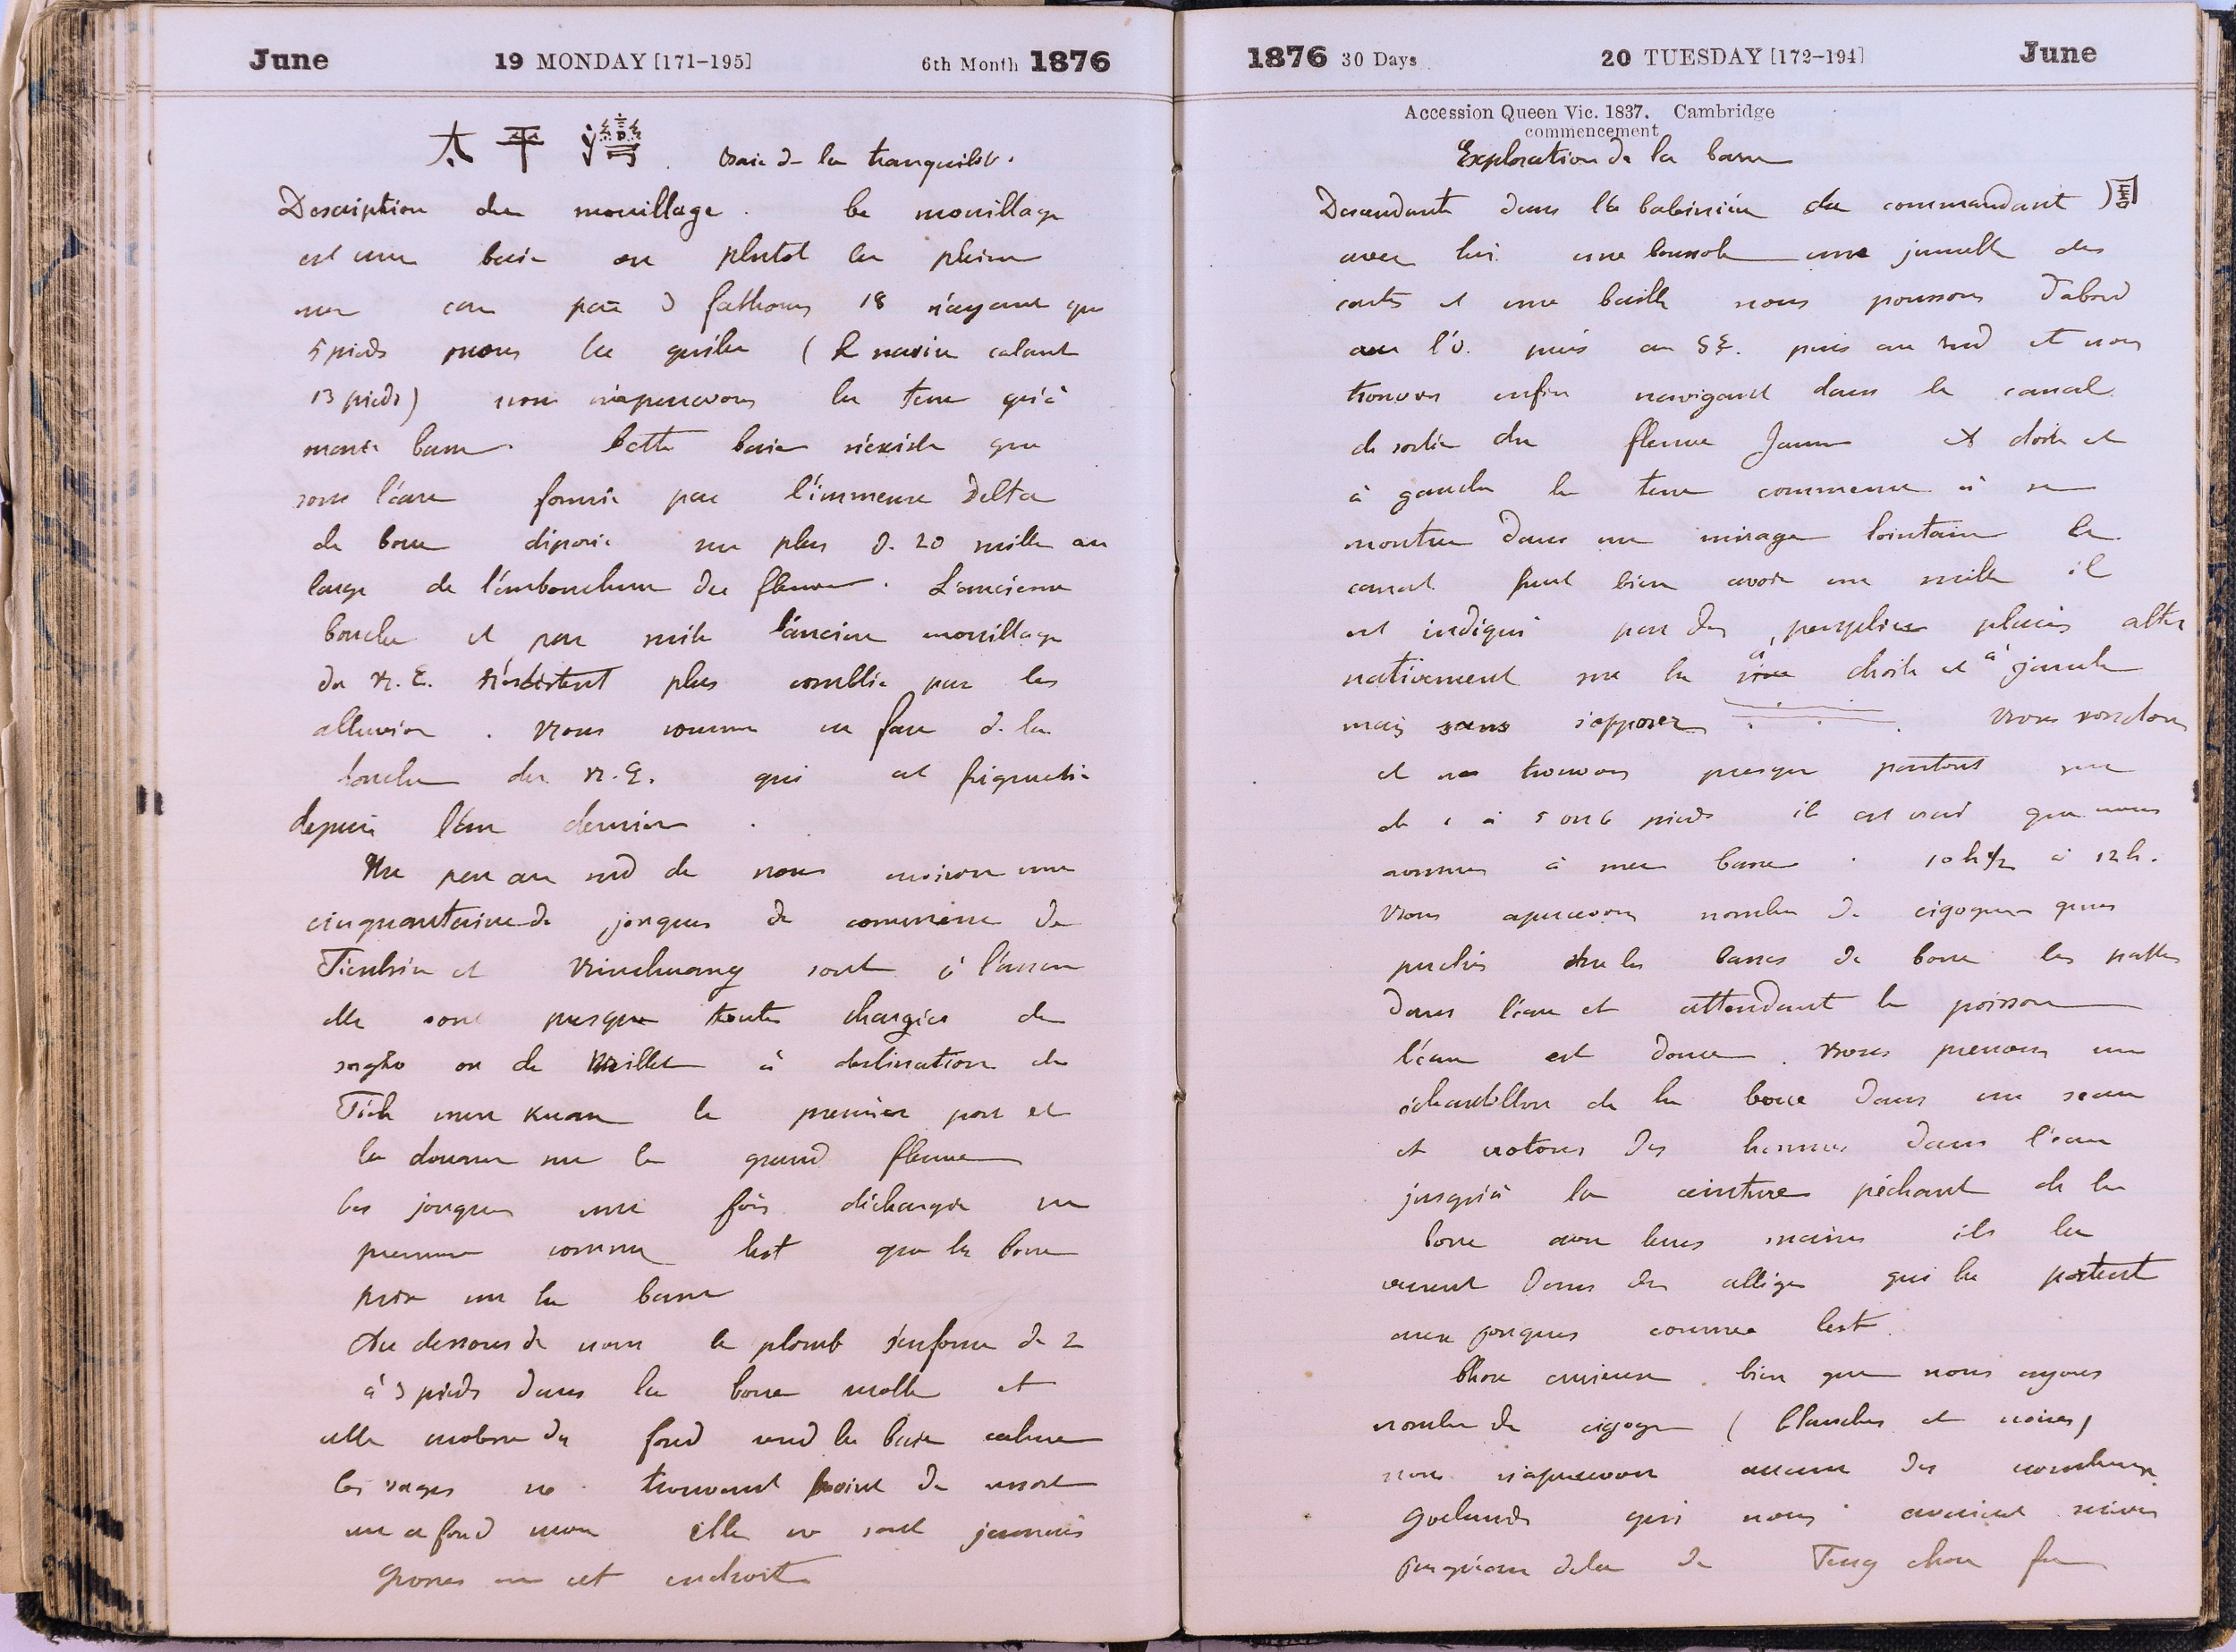 June 19 MONDAY [171-195] 6th Month 1876
太平灣. Baie de la tranquilité.
Description du mouillage. Le mouillage
est une baie ou plutot la pleine
mer car par 3 fathoms 18 n'ayant que
5 pieds sous la quille (le navire calant
13 pieds) nous n'apercevons la terre qu'à
marée basse. Cette baie n'existe que
sous l'eau formée par l'immense Delta
de boue déposée sur plus de 20 mille au
large de l'embouchure du fleuve. L'ancienne
bouche et par suite l'ancien mouillage
du N.E. n'existent plus comblée par les
alluvion. Nous sommes en face de la
bouche du N.E. qui est fréquentée
depuis l'an dernier.
Un peu au sud de nous environ une
cinquantaine de jonques de commerce de
Tientsin et Niuchuang sont à l'ancre
elle sont presque toutes chargées de
sorgho ou de millet à destination de
Tieh men Kuan le premier port et
la douane sur le grand fleuve
Les jonques une fois déchargée ne
prennent comme lest que la boue
prise sur la barre
Au dessous de nous le plomb s'enfonce de 2
à 3 pieds dans la boue molle et
cette molesse du fond rend la baie calme
les vagues ne trouvant point de ressort
sur ce fond mou elle ne sont jamais
grosses en cet endroit
1876 30 Days 20 TUESDAY [172-194] June
Accession Queen Vic. 1837. Cambridge
commencement
Exploration de la barre
Descendants dans la baleinière du commandant
avec lui une boussole une jumelle des
cartes et une baille nous poussons d'abord
au l'O. puis au SE. puis au sud et nous
trouvons enfin navigant dans le canal
de sortie du fleuve Jaune A droite et
à gauche la terre commence à se
montrer dans un mirage lointain Le
canal peut bien avoir un mille il
est indiqué par des placés alter
nativement sur la rive à droite et à gauche
mais sans s'opposer. Nous sondons
et ne trouvons presque partout que
de 1 à 5 ou 6 pieds il est vrai que nous
sommes à mer basse. 10 h 1/2 à 12 h.
Nous apercevons nombre de cigognes grues
perchés sur les barres de boue les pattes
dans l'eau et attendant le poisson
l'eau est douce. Nous prenons un
échantillon de la boue dans un seau
et notons des hommes dans l'eau
jusqu'à la ceinture pêchant de la
boue avec leurs mains ils la
versent dans des allèges qui la portent
aux jonques comme lest.
Chose curieuse. bien que nous ayons
nombre de cigogne (blanches et noires)
nous n'apercevons aucun des nombreux
goelands qui nous avaient suivis
jusqu'au dela de Teng chou fu